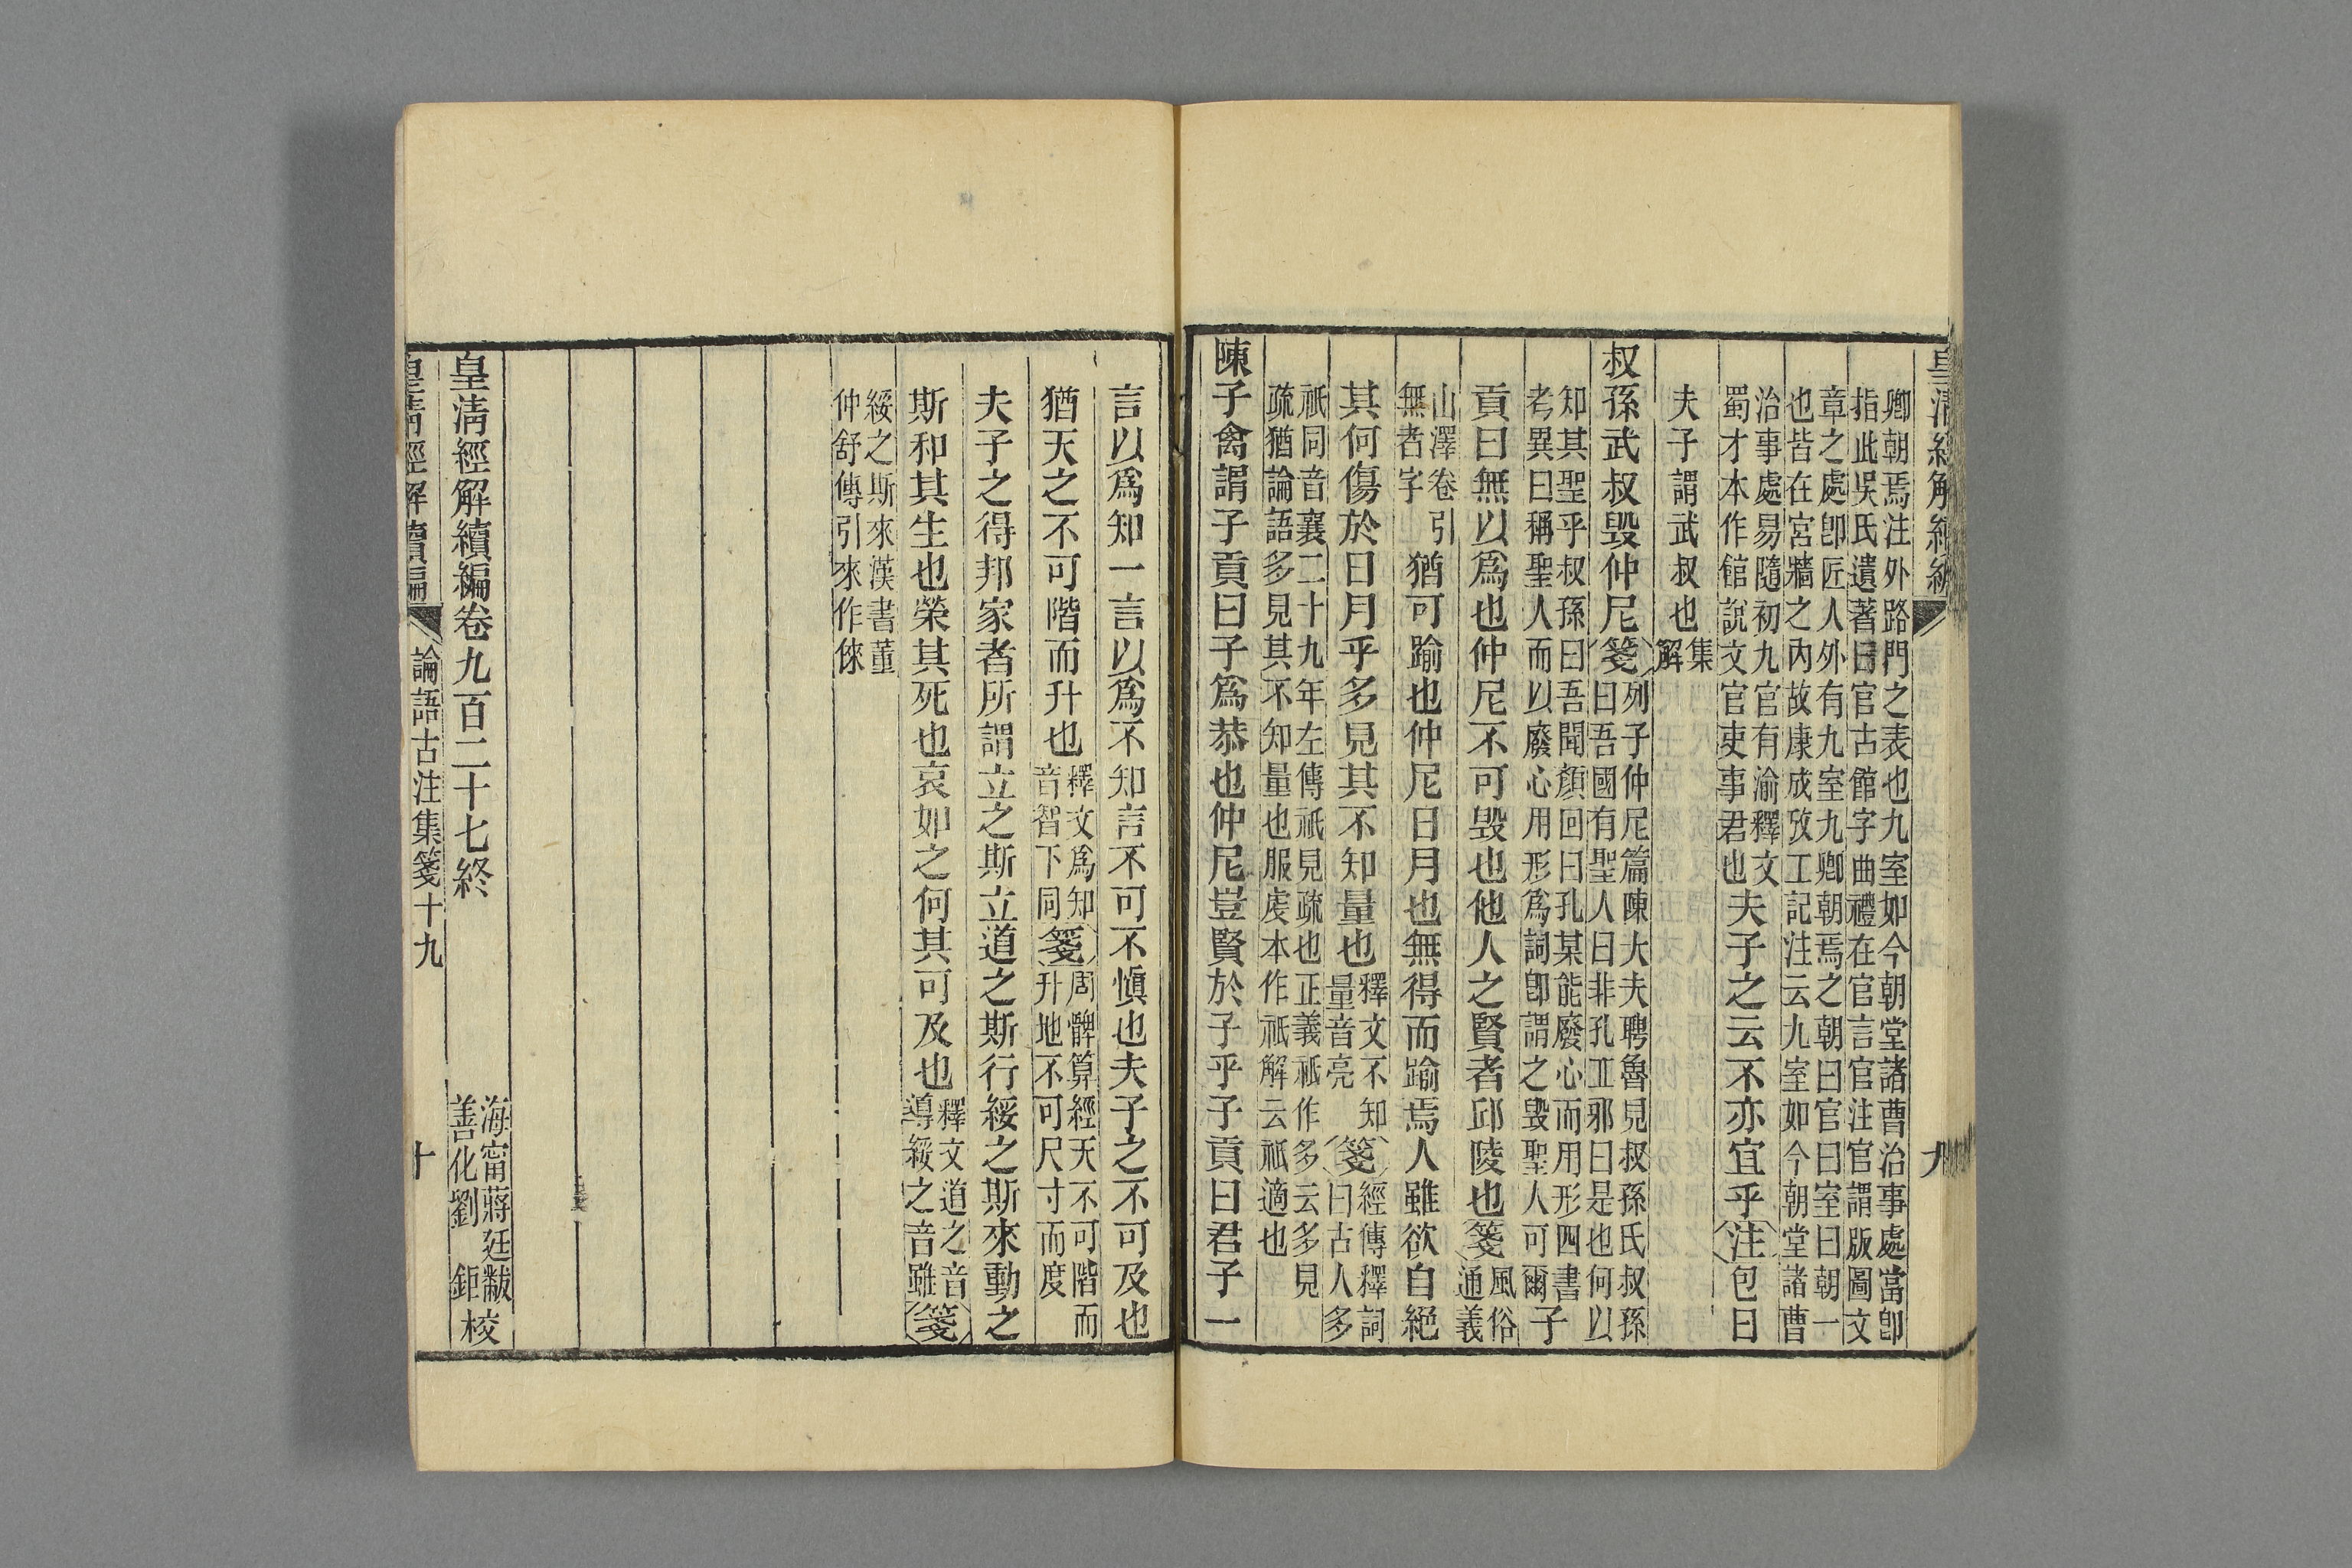 皇清經解續編
九
卿朝焉注外路門之表也九室如今朝堂諸曹治事處當卽
指此吳氏遺著曰官古館字曲禮在官言官注官謂版圖文
章之處卽匠人外有九室九卿朝焉之朝曰官曰室曰朝一
也皆在宮牆之內故康成攷工記注云九室如今朝堂諸曹
治事處易隨初九官有渝釋文
蜀才本作館說文官吏事君也
夫子之云不亦宜乎注包曰
夫子謂武叔也集
解
叔孫武叔毀仲尼箋列子仲尼篇陳大夫聘魯見叔孫氏叔孫
曰吾國有聖人曰非孔丘邪曰是也何以
知其聖乎叔孫曰吾聞顏回曰孔某能廢心而用形四書
考異曰稱聖人而以廢心用形爲詞卽謂之毀聖人可爾
子
貢曰無以爲也仲尼不可毀也他人之賢者邱陵也箋風俗
通義
山澤卷引
無者字
猶可踰也仲尼日月也無得而踰焉人雖欲自絕
其何傷於日月乎多見其不知量也釋文不知
量音亮
箋經傳釋詞
曰古人多
祇同音襄二十九年左傳祇見疏也正義祇作多云多見
疏猶論語多見其不知量也服虔本作祇解云祇適也
陳子禽謂子貢曰子爲恭也仲尼豈賢於子乎子貢曰君子一
言以爲知一言以爲不知言不可不愼也夫子之不可及也
猶天之不可階而升也釋文爲知
音智下同
箋周髀算經天不可階而
升地不可尺寸而度
夫子之得邦家者所謂立之斯立道之斯行綏之斯來動之
斯和其生也榮其死也哀如之何其可及也釋文道之音
導綏之音雖
箋
綏之斯來漢書董
仲舒傳引來作倈
皇清經解續編卷九百二十七終
海甯蔣廷黻
善化劉鉅
校
皇清經解續編
論語古注集箋十九
十